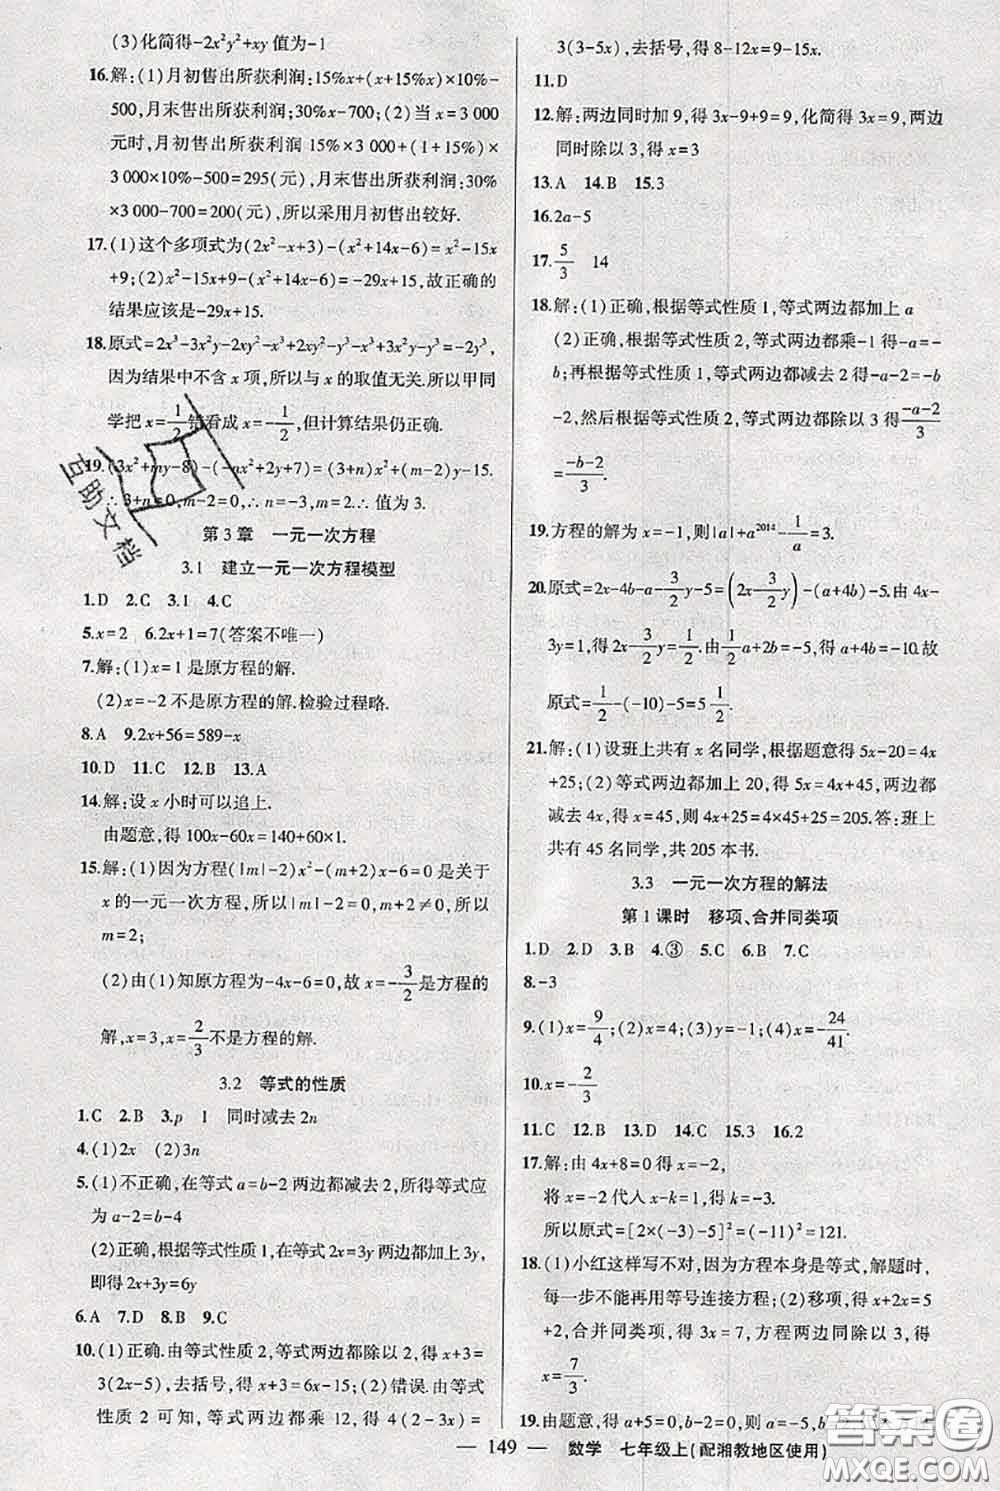 (3)化简得-2x²y²+xy 值为-1
16.解:(1)月初售出所获利润:15%x+(x+15%x)×10%-
500,月末售出所获利润:30%x-700;(2)当 x=3 000
时,月初售出所获利润 15%×3 000+(1+15%)×
3 000×10%-500=295(元),月末售出所获利润:30%
×3 000-700=200(元),所以采用月初售出较好.
17.(1)这个多项式为(2x²-x+3)-(x²+14x-6)=x²-15x
+9;(2)x²-15x+9-(x²+14x-6)=-29x+15,故正确的
结果应该是-29x+15.
18.原式=2x³-3x²y-2xy²-x³+2xy²-y³-x³+3x²y-y³=-2y³,
因为结果中不含 x 项,所以与 x 的取值无关.所以甲同
学把 x=1/2错看成 x=-1/2,但计算结果仍正确.
19.(3x²+my-8)-(-nx²+2y+7)=(3+n)x²+(m-2)y-15.
∴3+n=0,m-2=0,∴n=-3,m=2.∴值为 3.
第 3 章 一元一次方程
3.1 建立一元一次方程模型
1.D 2.C 3.1 4.C
5.x=2 6.2x+1=7(答案不唯一)
7.解:(1)x=1 是原方程的解.
(2)x=-2 不是原方程的解.检验过程略.
8.A 9.2x+56=589-x
10.D 11.C 12.B 13.A
14.解:设 x 小时可以追上.
由题意,得 100x-60x=140+60×1.
15.解:(1)因为方程(|m|-2)x²-(m+2)x-6=0 是关于
x 的一元一次方程,所以|m|-2=0,m+2≠0,所以
m=2;
(2)由(1)知原方程为-4x-6=0,故 x=-3/2是方程的
解,x=3,x=2/3不是方程的解.
3.2 等式的性质
1.C 2.B 3.p 1 同时减去 2n
4.(1)2x (2)3n
5.(1)不正确,在等式 a=b-2 两边都减去 2,所得等式应
为 a-2=b-4
(2)正确,根据等式性质 1,在等式 2x=3y 两边都加上 3y,
即得 2x+3y=6y
6.A 7.D 8.B 9.C
10.(1)正确.由等式性质 2,等式两边都除以 2,得 x+3=
3(2x-5),去括号,得 x+3=6x-15;(2)错误.由等式
性质 2 可知,等式两边都乘 12,得 4(2-3x)=
3(3-5x),去括号,得 8-12x=9-15x.
11.D
12.解:两边同时加 9,得 3x-9+9=9,化简得 3x=9,两边
同时除以 3,得 x=3
13.A 14.B 15.3
16.2a-5
17.5/3 14
18.解:(1)正确,根据等式性质 1,等式两边都加上 a
(2)正确,根据等式性质 2,等式两边都乘-1得-a=-
b;再根据等式性质 1,等式两边都减去 2 得-a-2=-b
-2,然后根据等式性质 2,等式两边都除以 3 得(-a-2)/3
=(-b-2)/3.
19.方程的解为 x=-1,则|a|+a²⁰¹⁴-1/a=3.
20.原式=2x-4b-a-3/2y-5=(2x-3/2y)-(a+4b)-5.由 4x-
3y=1,得 2x-3/2y=1/2.由1/2a+2b=-5,得 a+4b=-10.故
原式=1/2-(-10)-5=5 1/2.
21.解:(1)设班上共有 x 名同学,根据题意得 5x-20=4x
+25;(2)等式两边都加上 20,得 5x=4x+45,两边都
减去 4x,得 x=45,则 4x+25=4×45+25=205.答:班上
共有 45 名同学,共 205 本书.
3.3 一元一次方程的解法
第 1 课时 移项、合并同类项
1.D 2.D 3.B 4.③ 5.C 6.B 7.C
8.-3
9.(1)x=9/4;(2)x=4;(3)y=-1;(4)x=-24/41.
10.x=-2/3
11.C 12.B 13.A 14.C 15.3 16.2
17.解:由 4x+8=0 得 x=-2,
将 x=-2 代入 x-k=1,得 k=-3.
所以原式=[2×(-3)-5]²=(-11)²=121.
18.(1)小红这样写不对,因为方程本身是等式,解题时,
每一步不能再用等号连接方程;(2)移项,得 x+2x=5
+2,合并同类项,得 3x=7,方程两边同除以 3,得
x=7/3.
19.由题意,得 a+5=0,b-2=0,得 a=-5,b
— 149 — 数学 七年级上(配湘教地区使用)
互助文档
答案圈
MXQE.COM